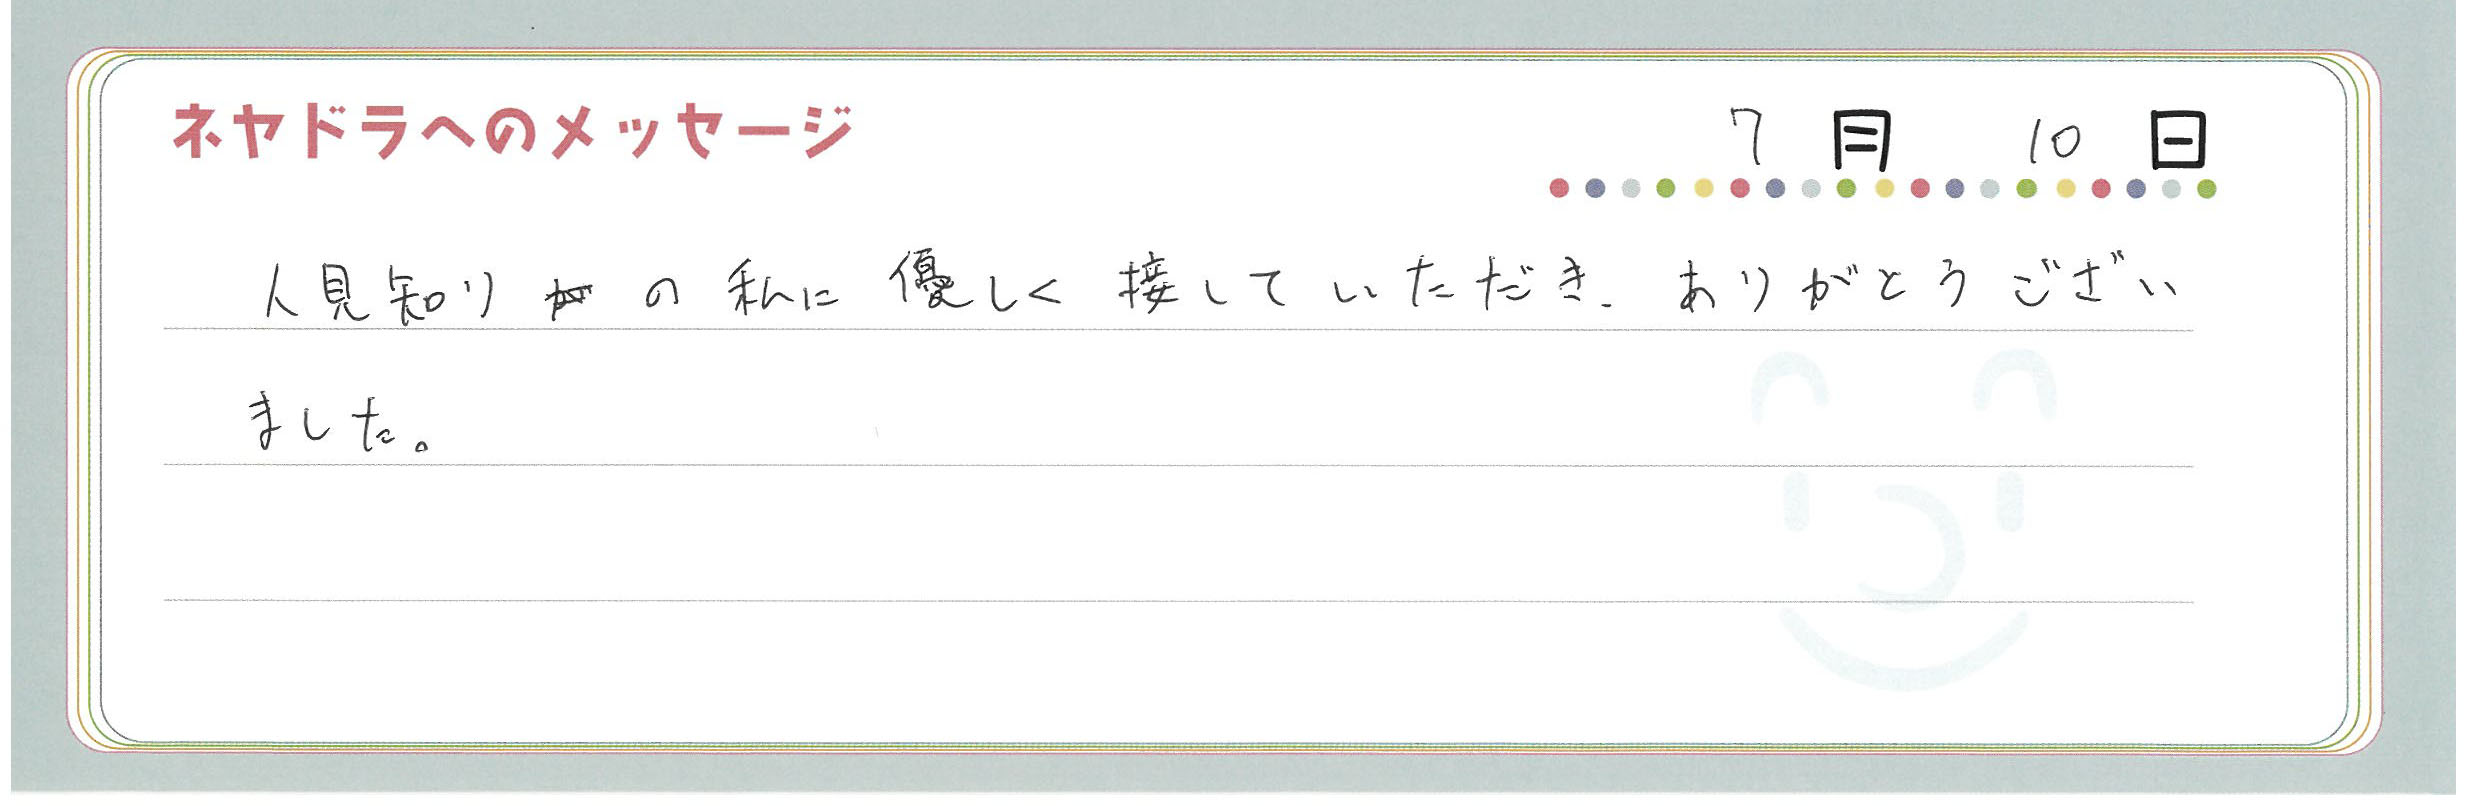 ネヤドラへのメッセージ
7月 10日
人見知りの私に優しく接していただき、ありがとうござい
ました。